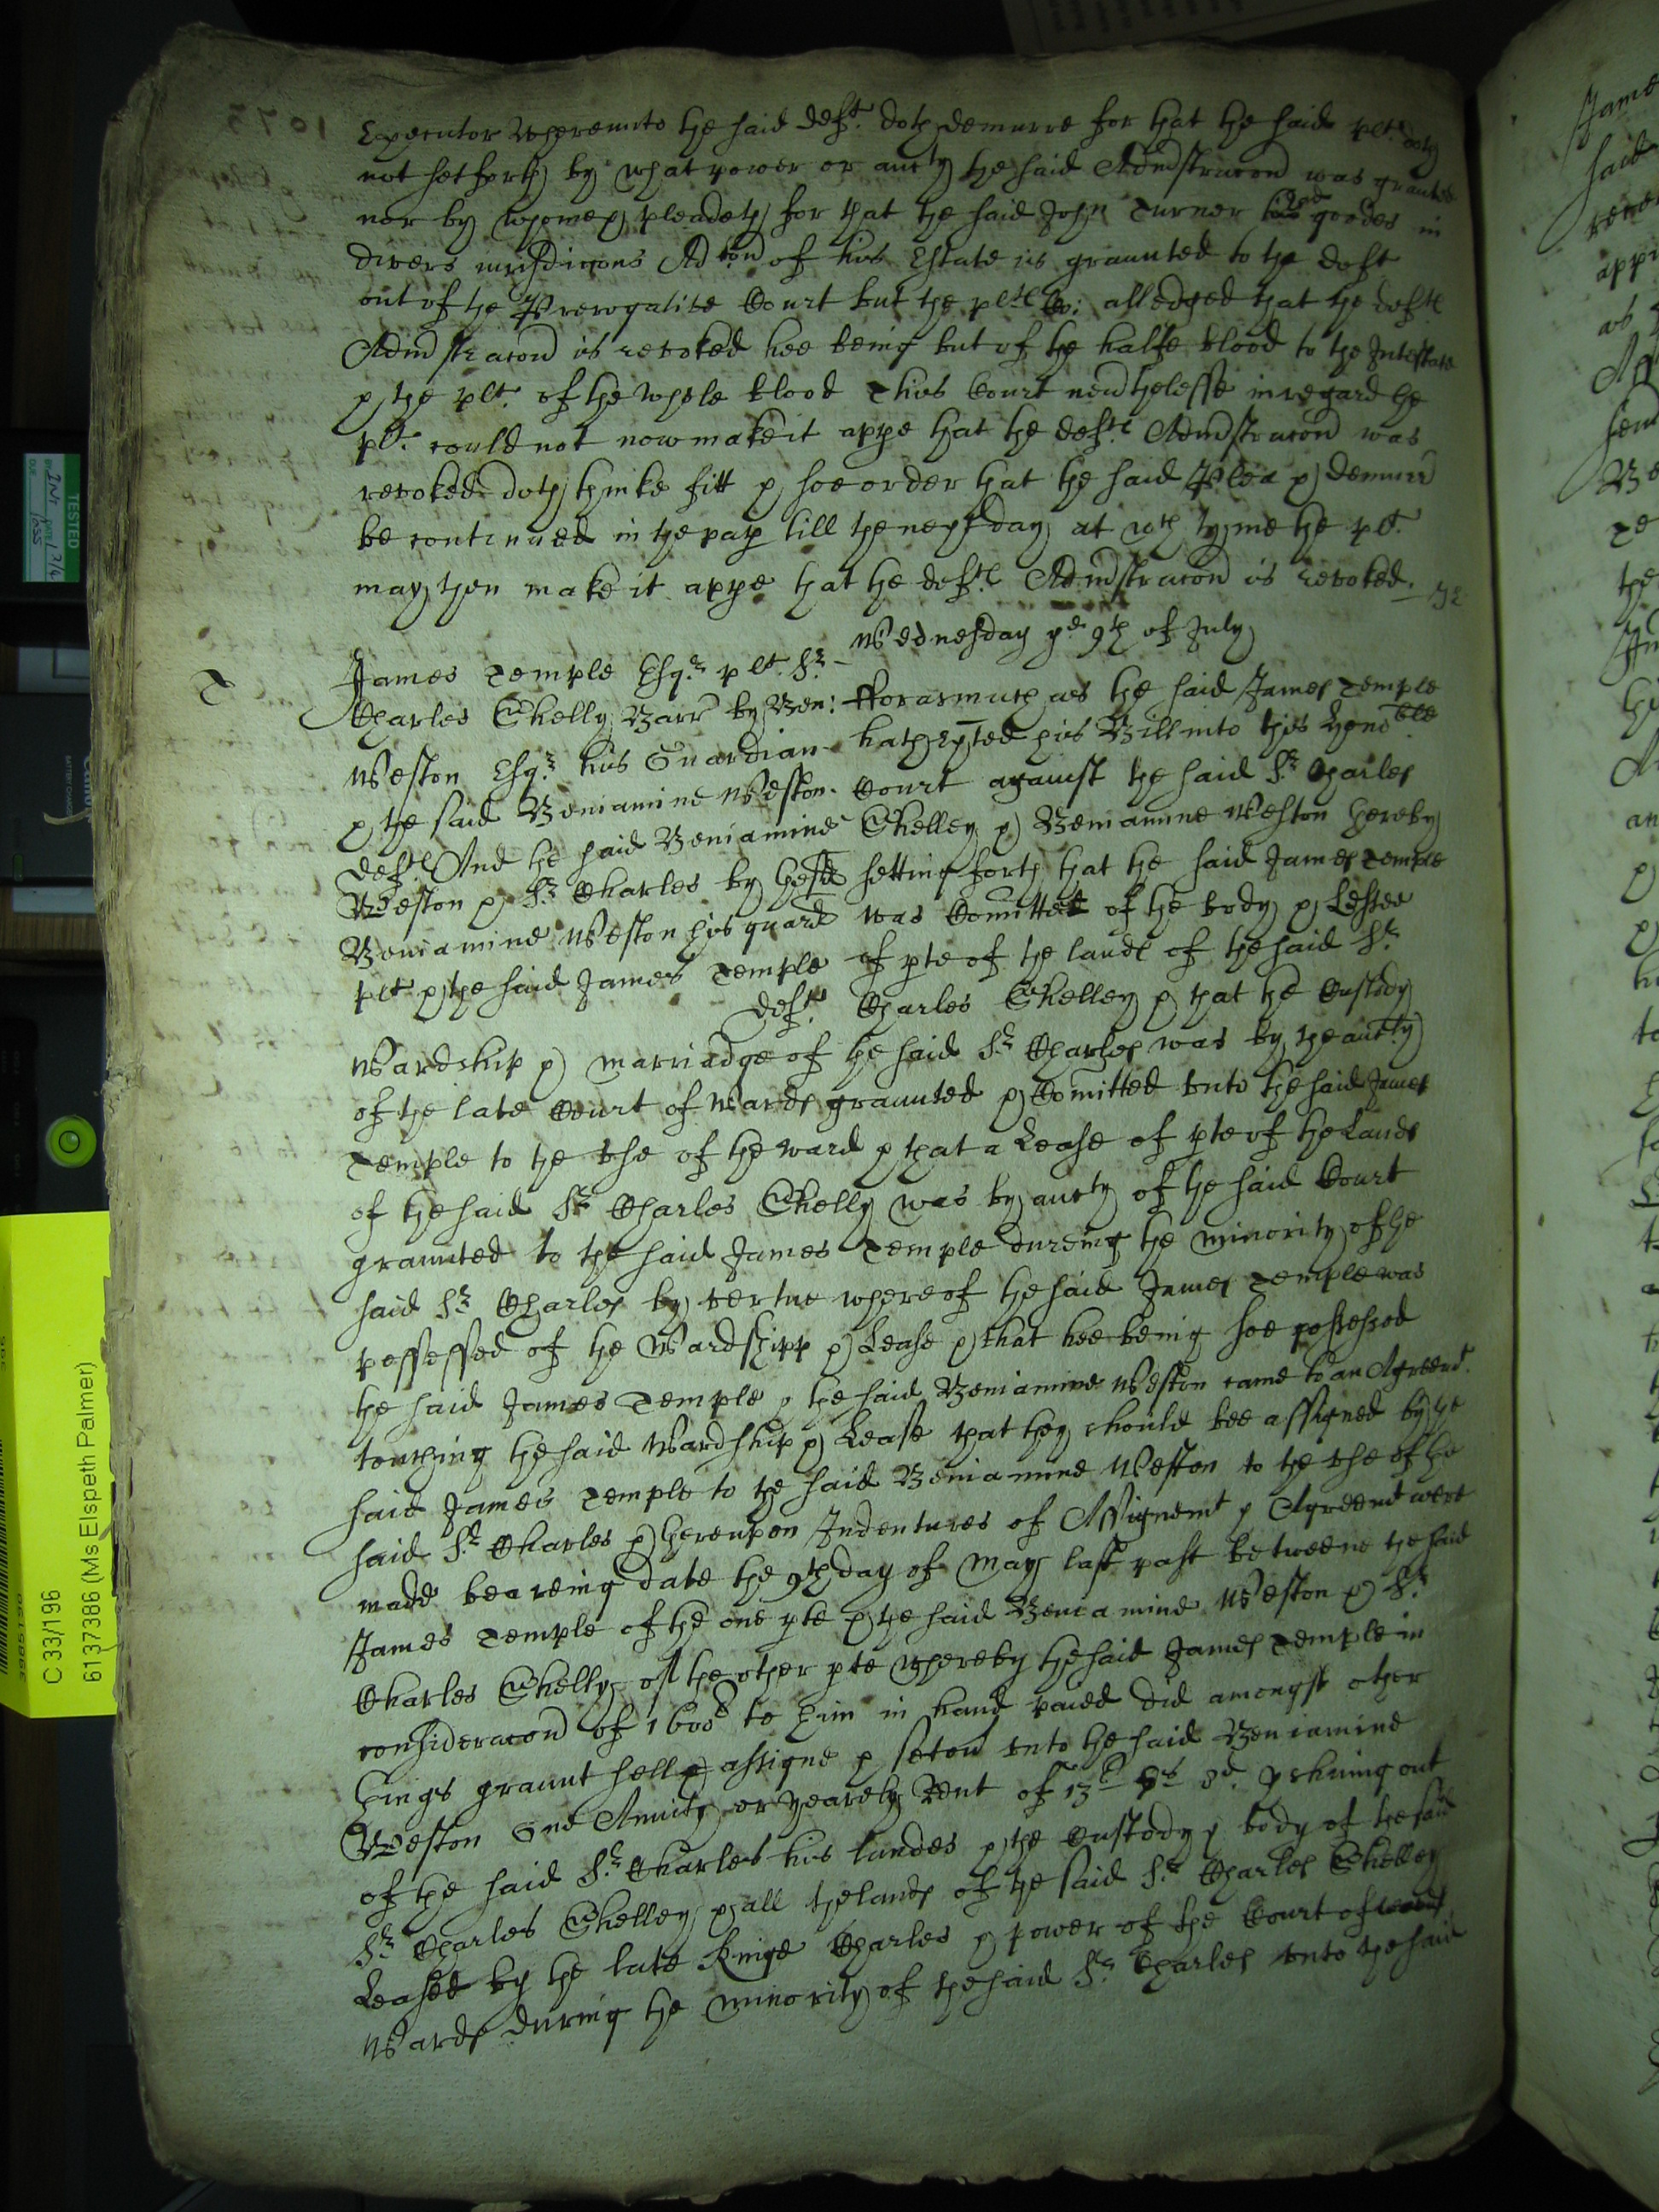 Executor Whereunto the said deft. doth demurre for that the said plt. doth
not set forth by what power or aucty the said Admstracon was graunted
nor by whome & pleadeth for that the said John Turner had goodes in
divers iurisdiccons Adcon of his Estate is graunted to the deft
out of the Prerogative Court but the plts Co: alledged that the defts
Admstracon is revoked hee being but of the halfe blood to the Intestate
& the plt. of the whole blood This Court nevthelesse in regard the
plt. could not now make it appe that the defts Admstracon was
revoked doth thinke fitt & soe order that the said Plea & demurr
be continued in the pap till the next day at wch tyme the plt.
may then make it appe that the defts Admstracon is revoked.
Wednesday ye 9th of July
T
James Temple Esqr. plt. Sr.
Charles Shelly Barr by Ben:
Weston Esqr. his Guardian
& the said Beniamine Weston
defts And the said Beniamine
Weston & Sr. Charles by the sd
Beniamine Weston his guard
plt & the said James Temple
deft.
Forasmuch as the said James Temple
hath exted his Bill into this Honoble
Court against the said Sr. Charles
Shelley & Beniamine Weston thereby
setting forth that the said James Temple
was Comitted of the body & Lessee
of pte of the lands of the said Sr.
Charles Shelley & that the Custody
Wardship & marriadge of the said Sr. Charles was by the aucty
of the late Court of Wards graunted & Comitted unto the said James
Temple to the use of the ward & that a Lease of pte of the Lands
of the said Sr. Charles Shelly was by aucty of the said Court
graunted to the said James Temple dureing the minority of the
said Sr. Charles by vertue whereof the said James Temple was
possessed of the Wardshipp & Lease & that hee being soe possessed
the said James Temple & the said Beniamine Weston came to an Agreemt.
touching the said Wardship & Lease that they should bee assigned by the
said James Temple to the said Beniamine Weston to the use of the
said Sr. Charles & thereupon Indentures of Assignemt & Agreemt were
made beareing date the 9th day of May last past betweene the said
James Temple of the one pte & the said Beniamine Weston & Sr.
Charles Shelly of the other pte Whereby the said James Temple in
consideracon of to him in hand paied did amongst other
things graunt sell & assigne & set ou unto the said Beniamine
Weston One Anuity or yearely Rent of 13l 6s 8d. yssuing out
of the said Sr. Charles his landes & the Custody & body of the said
Sr. Charles Shelley & all the lands of the said Sr. Charles Shelley
Leased by the late Kinge Charles & power of the Court of
Wards during the minority of the said Sr. Charles unto the said
TESTED
C 33/196
6137386 (Ms Elspeth Palmer)